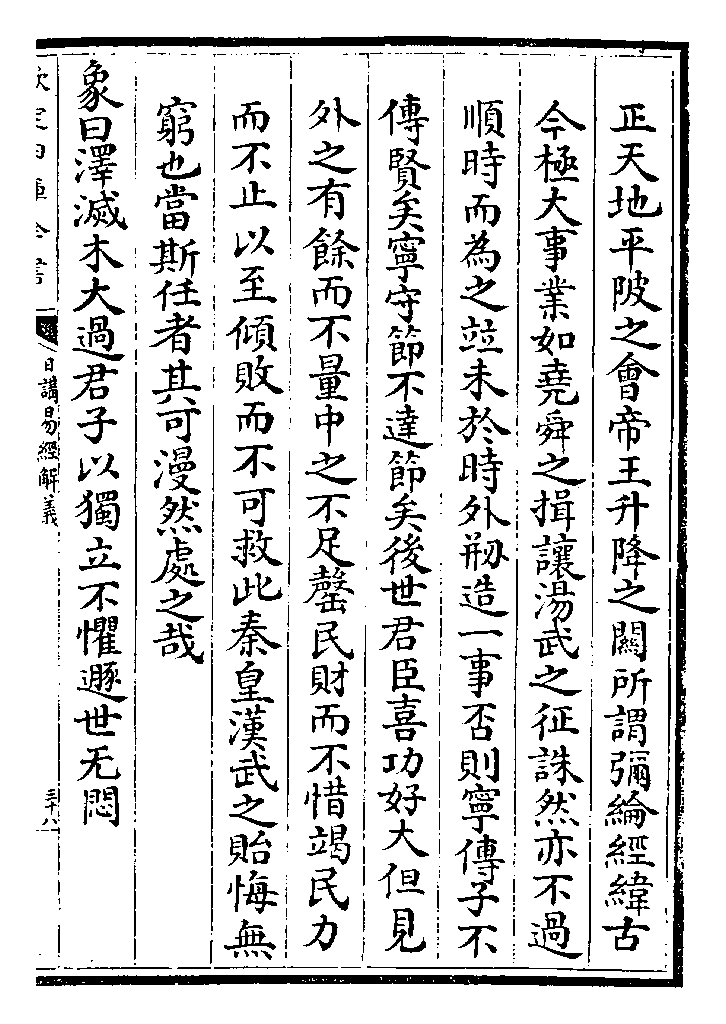 正天地平陂之會帝王升降之關所謂彌綸經緯古
今極大事業如堯舜之揖讓湯武之征誅然亦不過
順時而為之竝未於時外剏造一事否則寧傳子不
傳賢矣寧守節不達節矣後世君臣喜功好大但見
外之有餘而不量中之不足罄民財而不惜竭民力
而不止以至傾敗而不可救此秦皇漢武之貽悔無
窮也當斯任者其可漫然處之哉
象曰澤滅木大過君子以獨立不懼遯世无悶
欽定四庫全書
日講易經解義
三十八